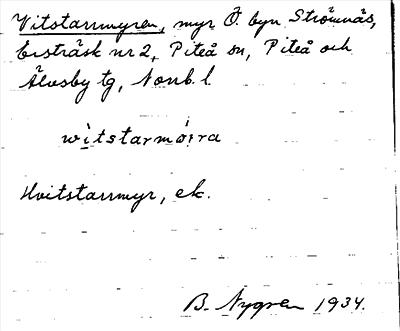 Vitstarrmyren, myr Ö byn Strömnäs,
Ersträsk nr 2, Piteå sn, Piteå och
Älvsby tg, Norrb. l.
witstarmȯrra
Hvitstarrmyr, ek.
B. Nygren 1934.